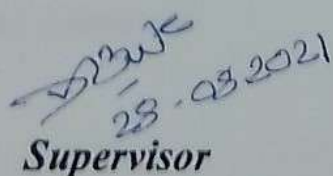 28.03.2021
Supervisor